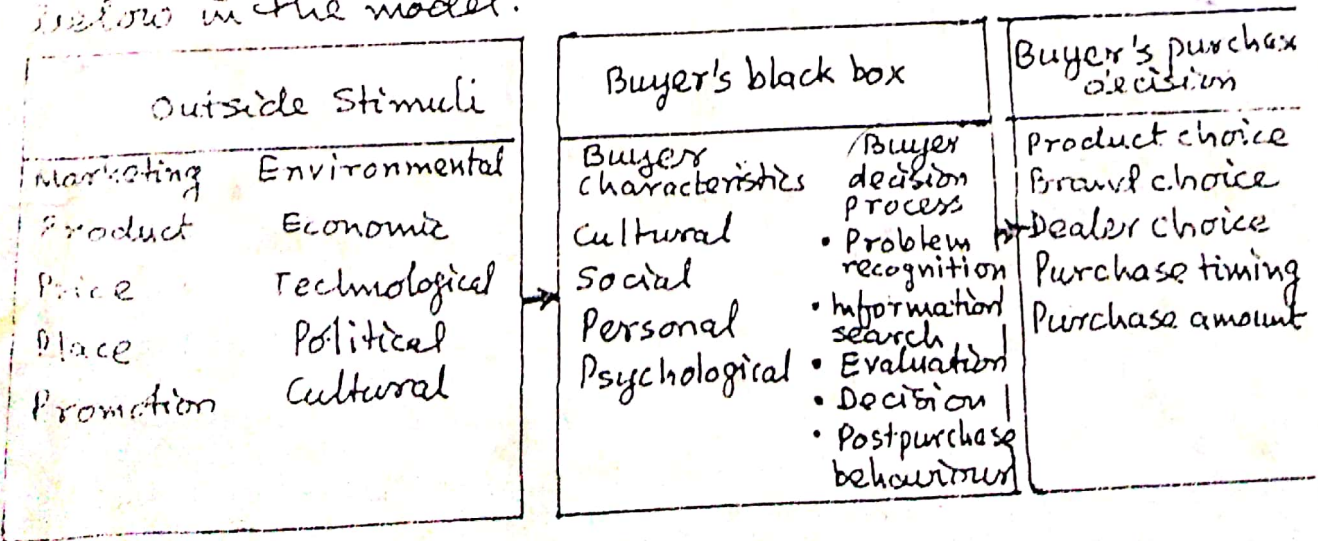 below in the model.
Outside Stimuli
Marketing Environmental
Product Economic
Price Technological
Place Political
Promotion Cultural
Buyer's black box
Buyer
characteristics
Cultural
Social
Personal
Psychological
Buyer
decision
process
• Problem
recognition
• Information
search
• Evaluation
• Decision
• Postpurchase
behaviour
Buyer's purchase
decision
Product choice
Brand choice
Dealer choice
Purchase timing
Purchase amount